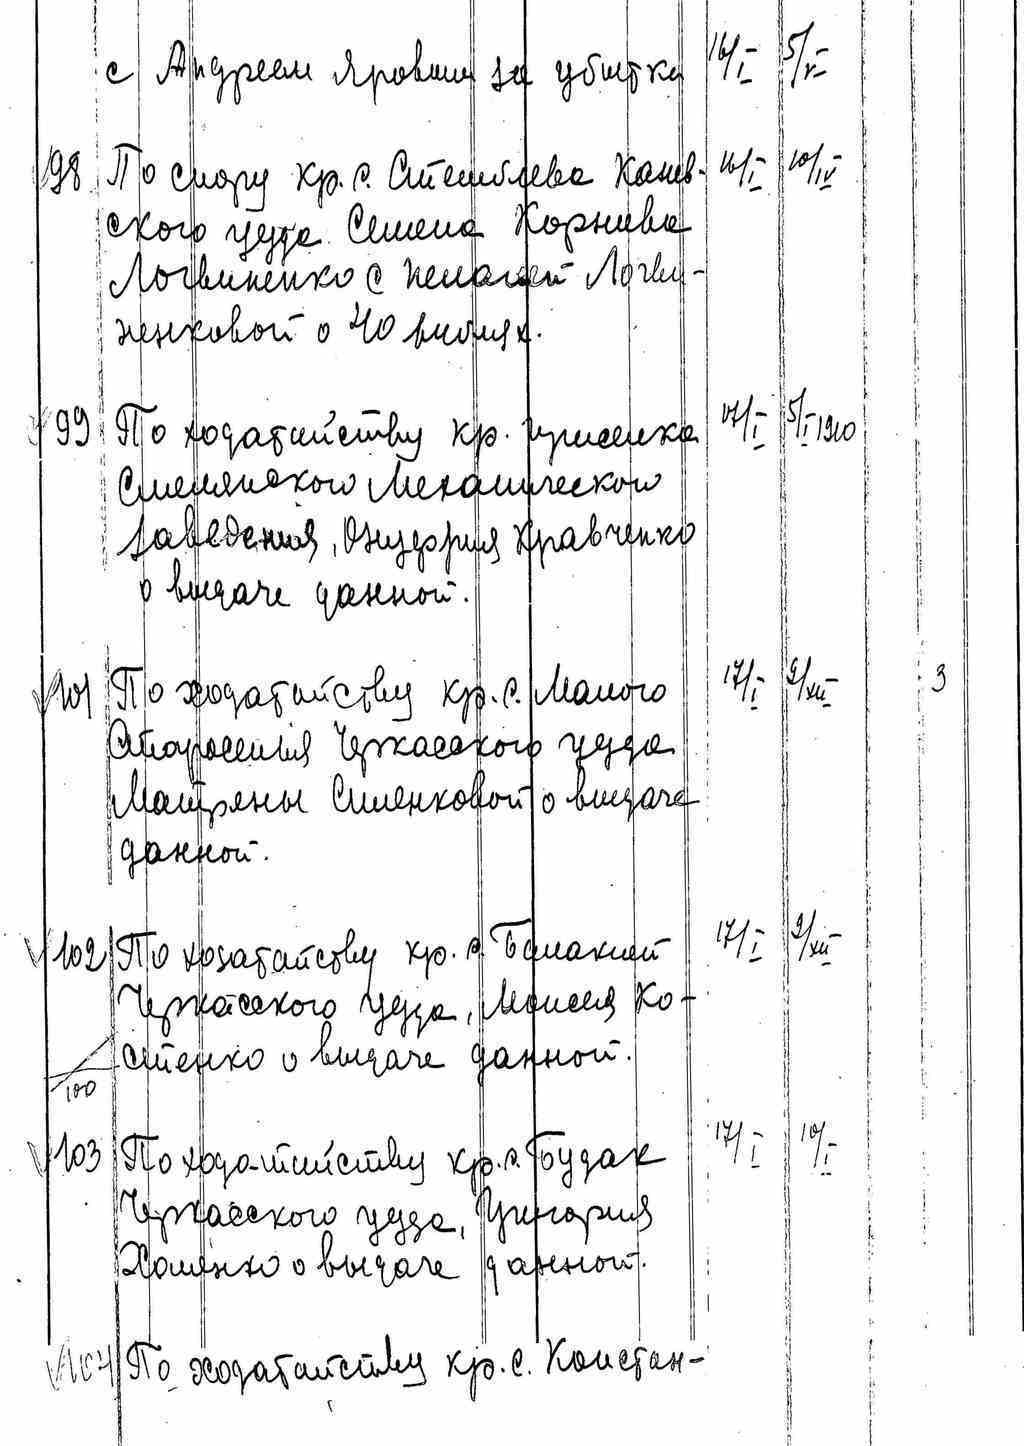 с Андреем Яровым за убытки 16/I 5/V
98 По спору кр. с. Стеблева Канев- 16/I 10/IV
ского уезда Семена Корнива
Логвиненко с Пелагей Логви-
ненковой о 40 рублях.
99 По ходатайству кр. приселка 17/I 5/I 1910
Смелянского Механического
заведения, Онуфрия Кравченко
о выдаче данной.
101 По ходатайству кр. с. Малого 17/I 9/XII 3
Староселья Черкасского уезда
Матрены Сименковой о выдаче
данной.
102 По ходатайству кр. с. Балаклей 17/I 9/XII
Черкасского уезда, Моисея Ко-
стенко о выдаче данной.
100
103 По ходатайству кр. с. Будак 17/I 10/I
Черкасского уезда, Григория
Хоменко о выдаче данной.
104 По ходатайству кр. с. Констан-